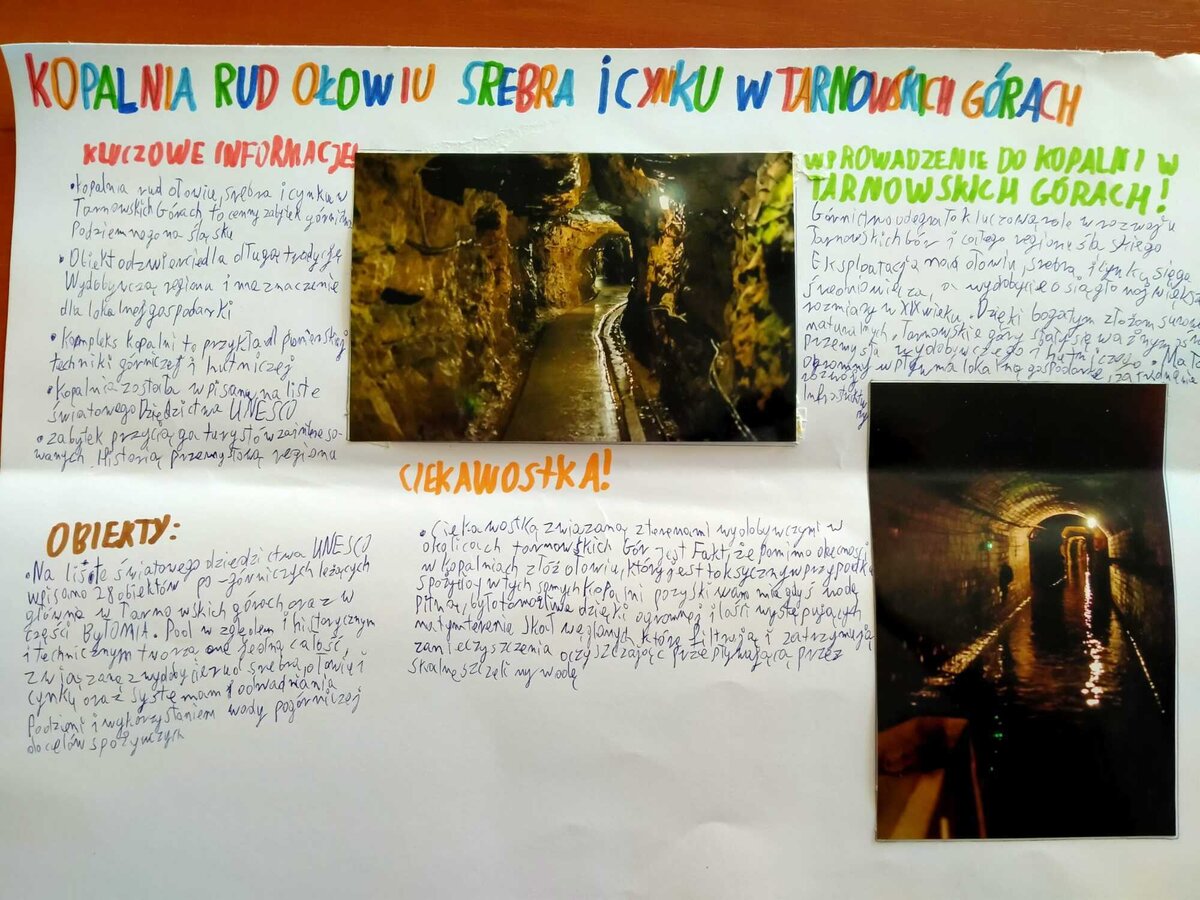 KOPALNIA RUD OŁOWIU SREBRA i CYNKU W TARNOWSKICH GÓRACH
KLUCZOWE INFORMACJE!
• kopalnia rud ołowiu, srebra i cynku w
Tarnowskich Górach to cenny zabytek górnictwa
Podziemnego na śląsku
• Obiekt odzwierciedla długą tradycję
Wydobywczą regionu i ma znaczenie
dla lokalnej gospodarki
• Kompleks kopalni to przykład pionierskiej
techniki górniczej i hutniczej
• Kopalnia została wpisana na liste
światowego Dziędzictwa UNESCO
• zabytek przyciąga turystów zaintereso-
wanych Historią przemysłową regionu
WPROWADZENIE DO KOPALNI W
TARNOWSKICH GÓRACH!
Górnictwo odegrało kluczową role w rozwoju
Tarnowskich Gór i całego regionu śląskiego
Eksploatacja ołowiu, srebra i cynku sięga
średniowiecza, a wydobycie osiągło największe
rozmiary w XIX wieku. Dzięki bogatym złożom
naturalnych, Tarnowskie góry stały się ważnym
przemysłu wydobywczego i hutniczego.
ogromny wpływ na lokalną gospodarke, zatrudnienie
rozwój
infrastruktury
CIEKAWOSTKA!
• Ciekawostką związaną z terenami wydobywczymi w
okolicach tarnowskich Gór jest Fakt, że pomimo obecności
w kopalniach złóż ołowiu, który jest toksyczny w przypadku
spożycia w tych samych kopalni pozyskiwana jest wodę
pitną, było to możliwe dzięki ogromnej ilości występujących
na tym terenie skał węglanych które filtrują i zatrzymują
zanieczyszczenia oczyszczając przepływającą przez
skalne szczeliny wodę
OBIEKTY:
• Na liście światowego dziedzictwa UNESCO
wpisano 28 obiektów po-górniczych leżących
głównie w Tarnowskich górach oraz w
części BYTOMIA. Pod względem i historycznym
i technicznym tworzą one jedną całość,
związane z wydobycie rud srebra, ołowiu i
cynku oraz systemami odwadniania
Podziemi i wykorzystaniem wody pogórniczej
do celów spożywczych